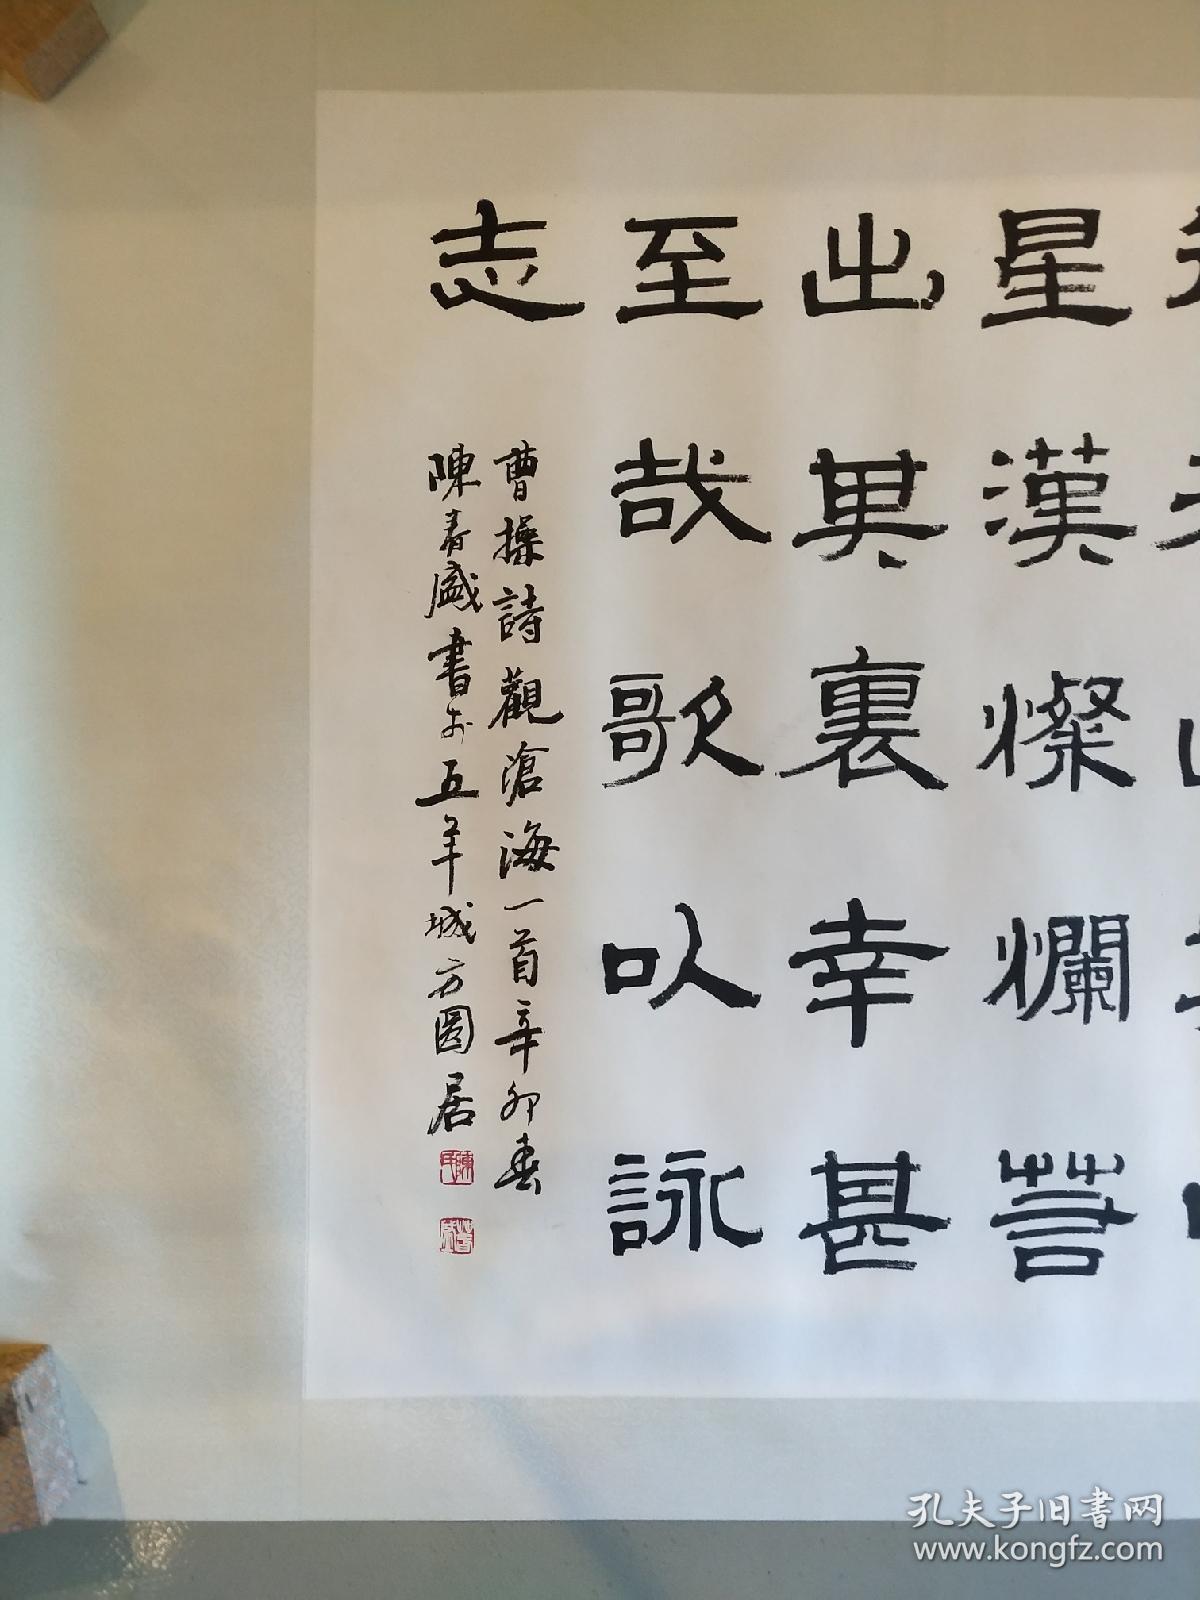 星漢燦爛若
出其裏幸甚
至哉歌以詠
志
曹操詩觀滄海一首辛卯春
陳春盛書於五羊城方圓居
孔夫子旧书网
www.kongfz.com